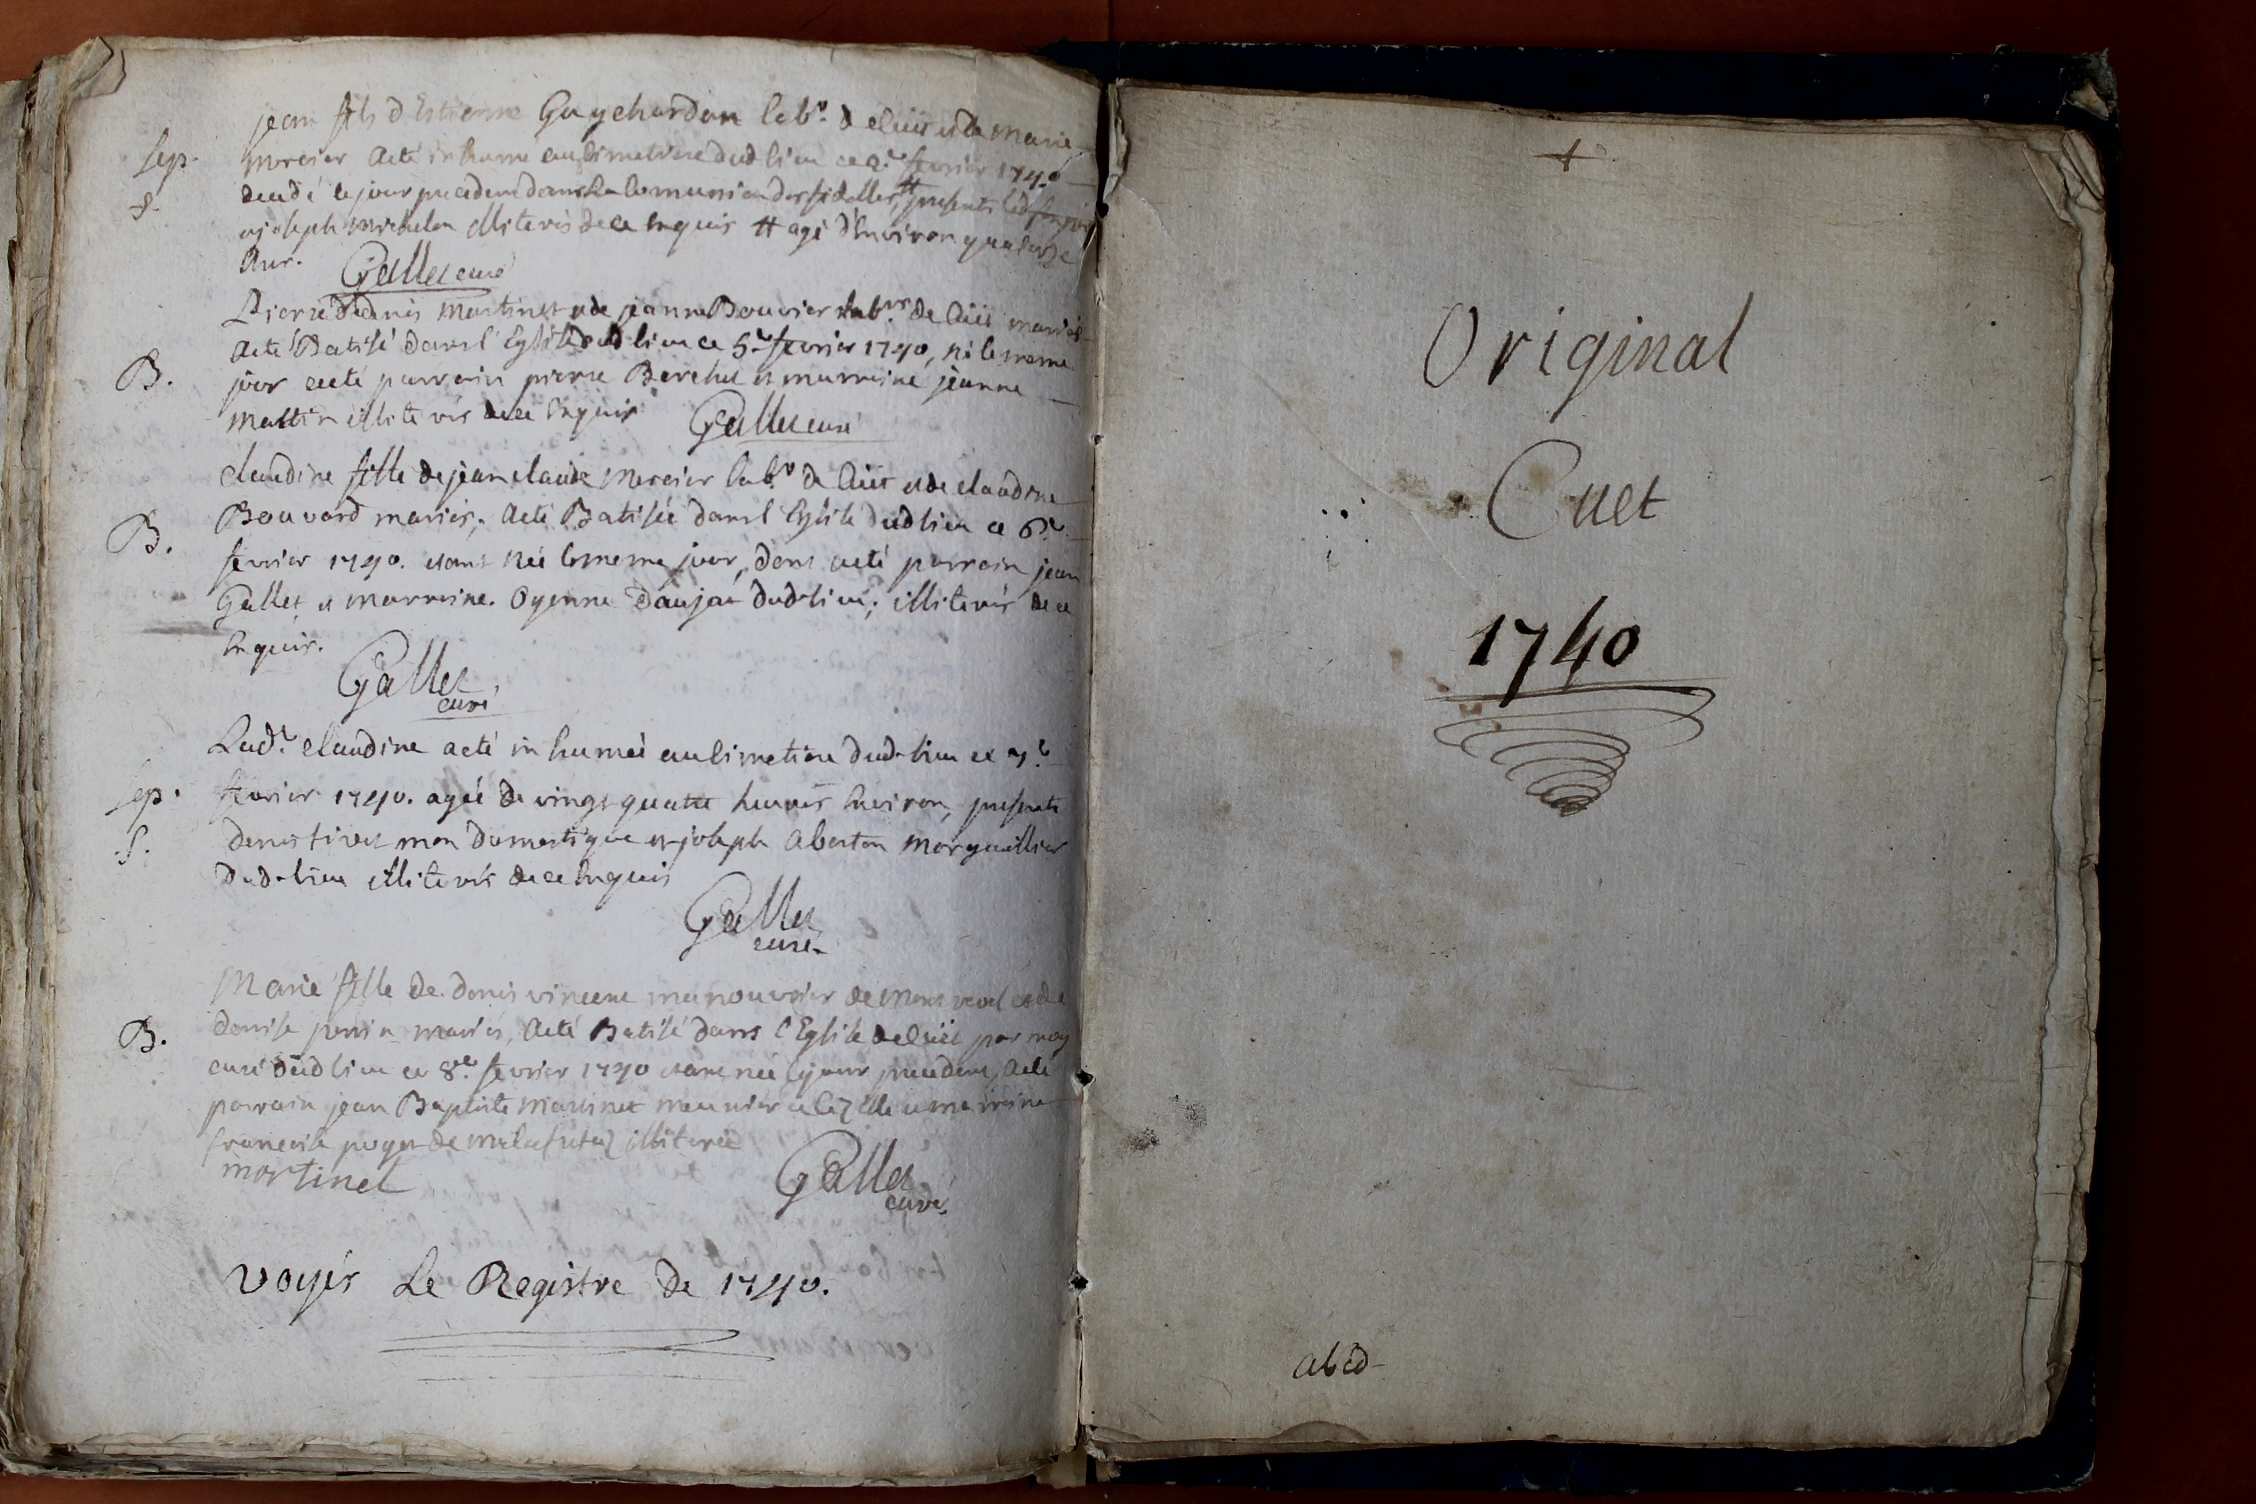 jean fils d Estienne Guychardan labr. d Cüit et de Marie
Sep. Mercier a eté inhumé au Cimetiere dud lieu ce 2e fevrier 1740
S. decedé le jour precedent dans la Comunion des fidelles, # presents led
et joseph Michelon illiterés de ce Enquis # agé d'Environ quatorze
Ans. Gallet curé
Pierre de denis Martinet et de jeanne Bouvier labrs de Cüit mariés
a eté Batisé dans l'Eglise dud lieu ce 5e fevrier 1740, né le meme
B. jour a eté parrain pierre Berchet et marraine jeanne
Martin illiterés de ce Enquis Gallet curé
Claudine fille de jean claude Mercier labr. de Cüit et de claudine
Bouvard mariés, a eté Batisée dans l Eglise dud lieu ce 6e
B. fevrier 1740. etant Née le meme jour, dont a eté parrain jean
Gallet et marraine. Oyenne Daujat dud. lieu; illiterés de ce
Enquis.
Gallet
curé
Lade. Claudine a eté inhumée au Cimetiere dud. lieu ce 7e
Sep. fevrier 1740. agée de vingt quatre heures Environ, presents
S. denis tivet mon domestique et joseph Aberton Marguillier
dud. lieu illiterés de ce Enquis
Gallet
curé
Marie fille de denis vincent manouvrier de Montrevel et de
B. denise mariés, a eté Batisé dans l'Eglise de Cüit par moy
curé dud lieu ce 8e fevrier 1740 etant née le jour precedent, a eté
parrain jean Baptiste Martinet meunier a et marraine
francoise de illiterée
martinet Gallet
curé
voyés Le Registre de 1740.
+
Original
Cuet
1740
abcd